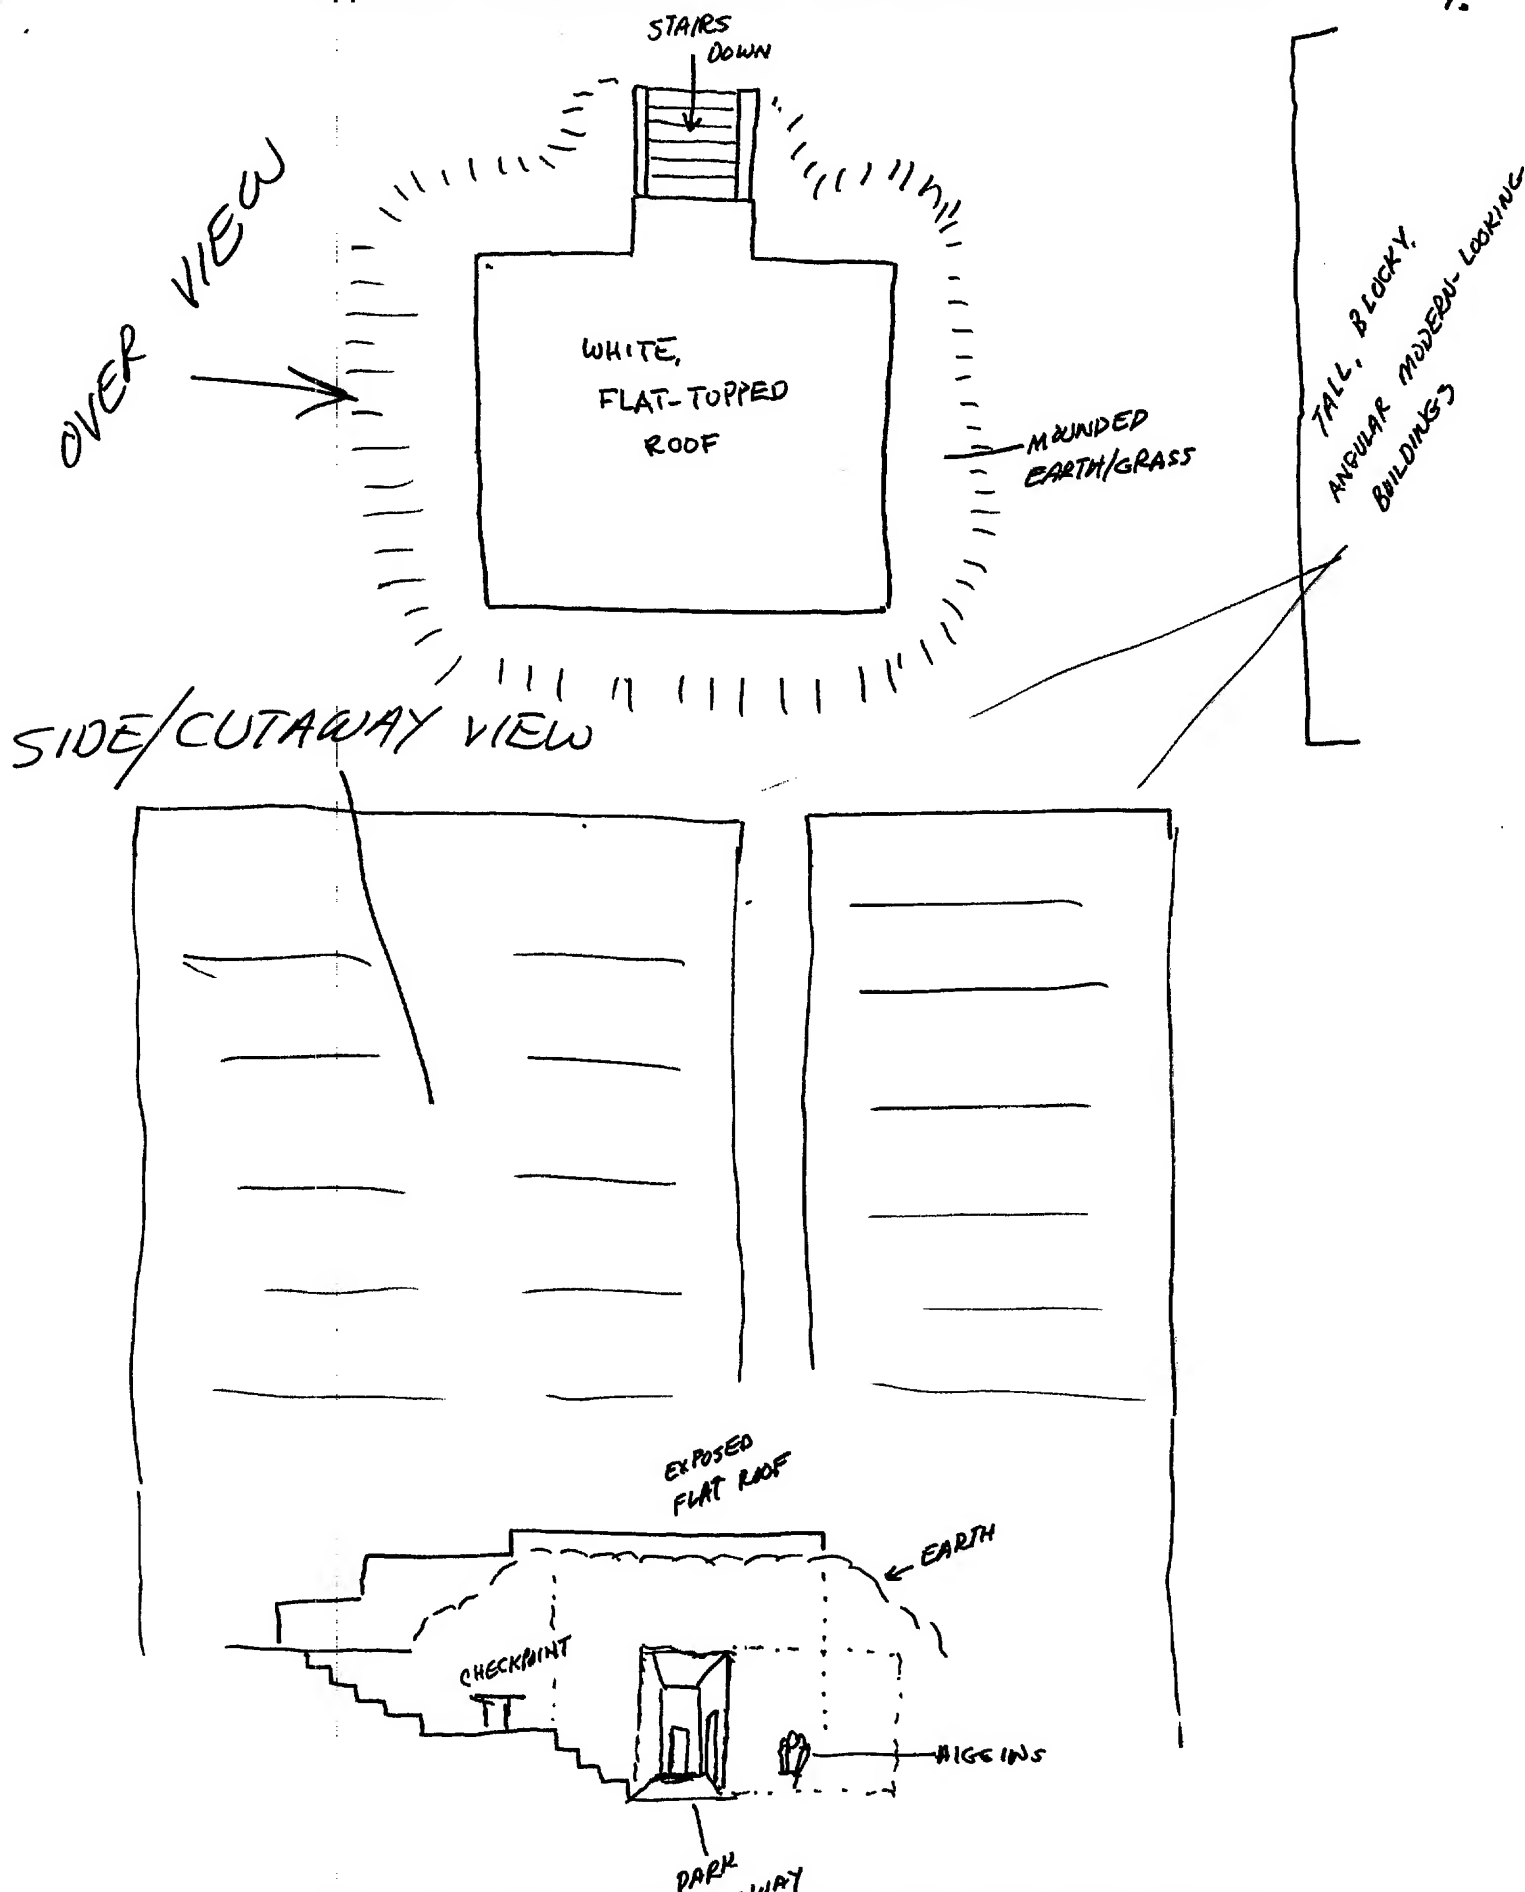 STAIRS
DOWN
OVER VIEW
WHITE,
FLAT-TOPPED
ROOF
MOUNDED
EARTH/GRASS
TALL, BLOCKY,
ANGULAR MODERN-LOOKING
BUILDINGS
SIDE/CUTAWAY VIEW
EXPOSED
FLAT ROOF
EARTH
CHECKPOINT
HIGGINS
DARK